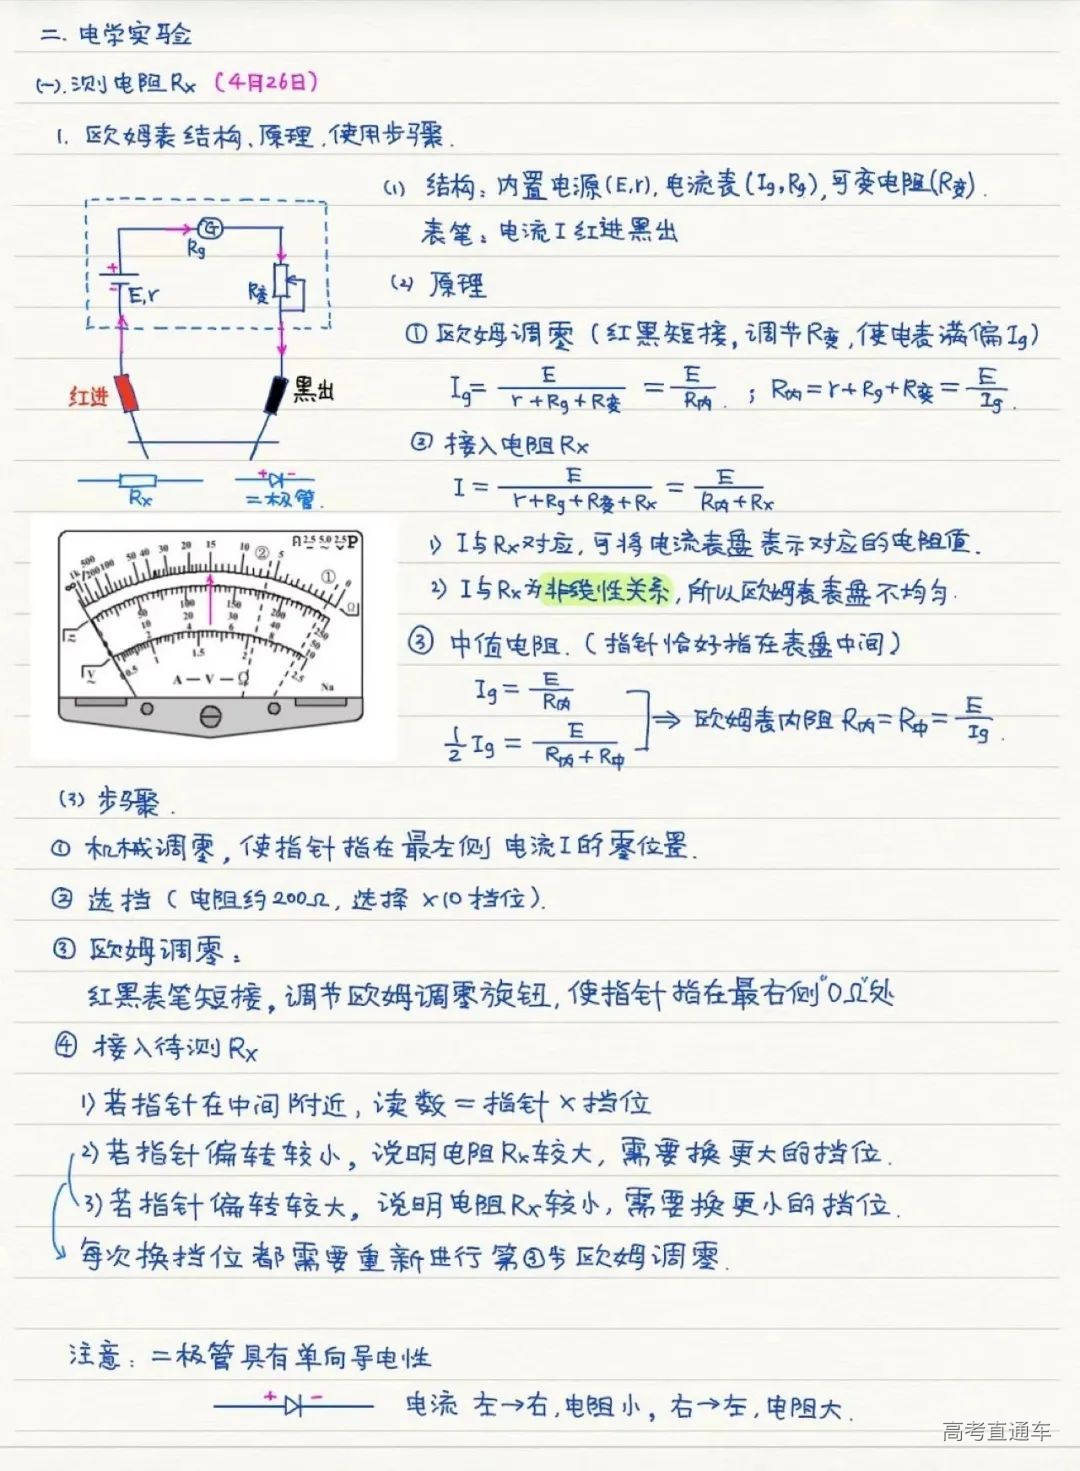 二. 电学实验
(一). 测电阻Rx (4月26日)
1. 欧姆表结构、原理、使用步骤.
(1) 结构: 内置电源(E,r), 电流表(Ig,Rg), 可变电阻(R变).
表笔: 电流I红进黑出
G
Rg
+
-
E,r
R变
红进
黑出
Rx
+ -
二极管.
(2) 原理
① 欧姆调零 (红黑短接, 调节R变, 使电表满偏Ig)
Ig = E/(r+Rg+R变) = E/R内 ; R内 = r+Rg+R变 = E/Ig.
② 接入电阻Rx
I = E/(r+Rg+R变+Rx) = E/(R内+Rx)
1) I与Rx对应, 可将电流表盘表示对应的电阻值.
2) I与Rx为非线性关系, 所以欧姆表表盘不均匀.
③ 中值电阻. (指针恰好指在表盘中间)
Ig = E/R内
1/2 Ig = E/(R内+R中)
⇒ 欧姆表内阻 R内=R中= E/Ig.
∞ 1k 500 200 100 50 40 30 20 15 10 ② 5 ① 0 Ω
2.5 5.0 2.5 P
0 50 100 150 200 250
0 10 20 30 40 50
0 2 4 6 8 10
0 0.5 1.5 2 2.5
V
A — V — Ω
Na
(3) 步骤.
① 机械调零, 使指针指在最左侧电流I的零位置.
② 选挡 (电阻约200Ω, 选择 ×10挡位).
③ 欧姆调零:
红黑表笔短接, 调节欧姆调零旋钮, 使指针指在最右侧"0Ω"处
④ 接入待测Rx
1) 若指针在中间附近, 读数 = 指针 × 挡位
2) 若指针偏转较小, 说明电阻Rx较大, 需要换更大的挡位.
3) 若指针偏转较大, 说明电阻Rx较小, 需要换更小的挡位.
每次换挡位都需要重新进行第③步欧姆调零.
注意: 二极管具有单向导电性
+ - 电流 左→右, 电阻小, 右→左, 电阻大.
高考直通车